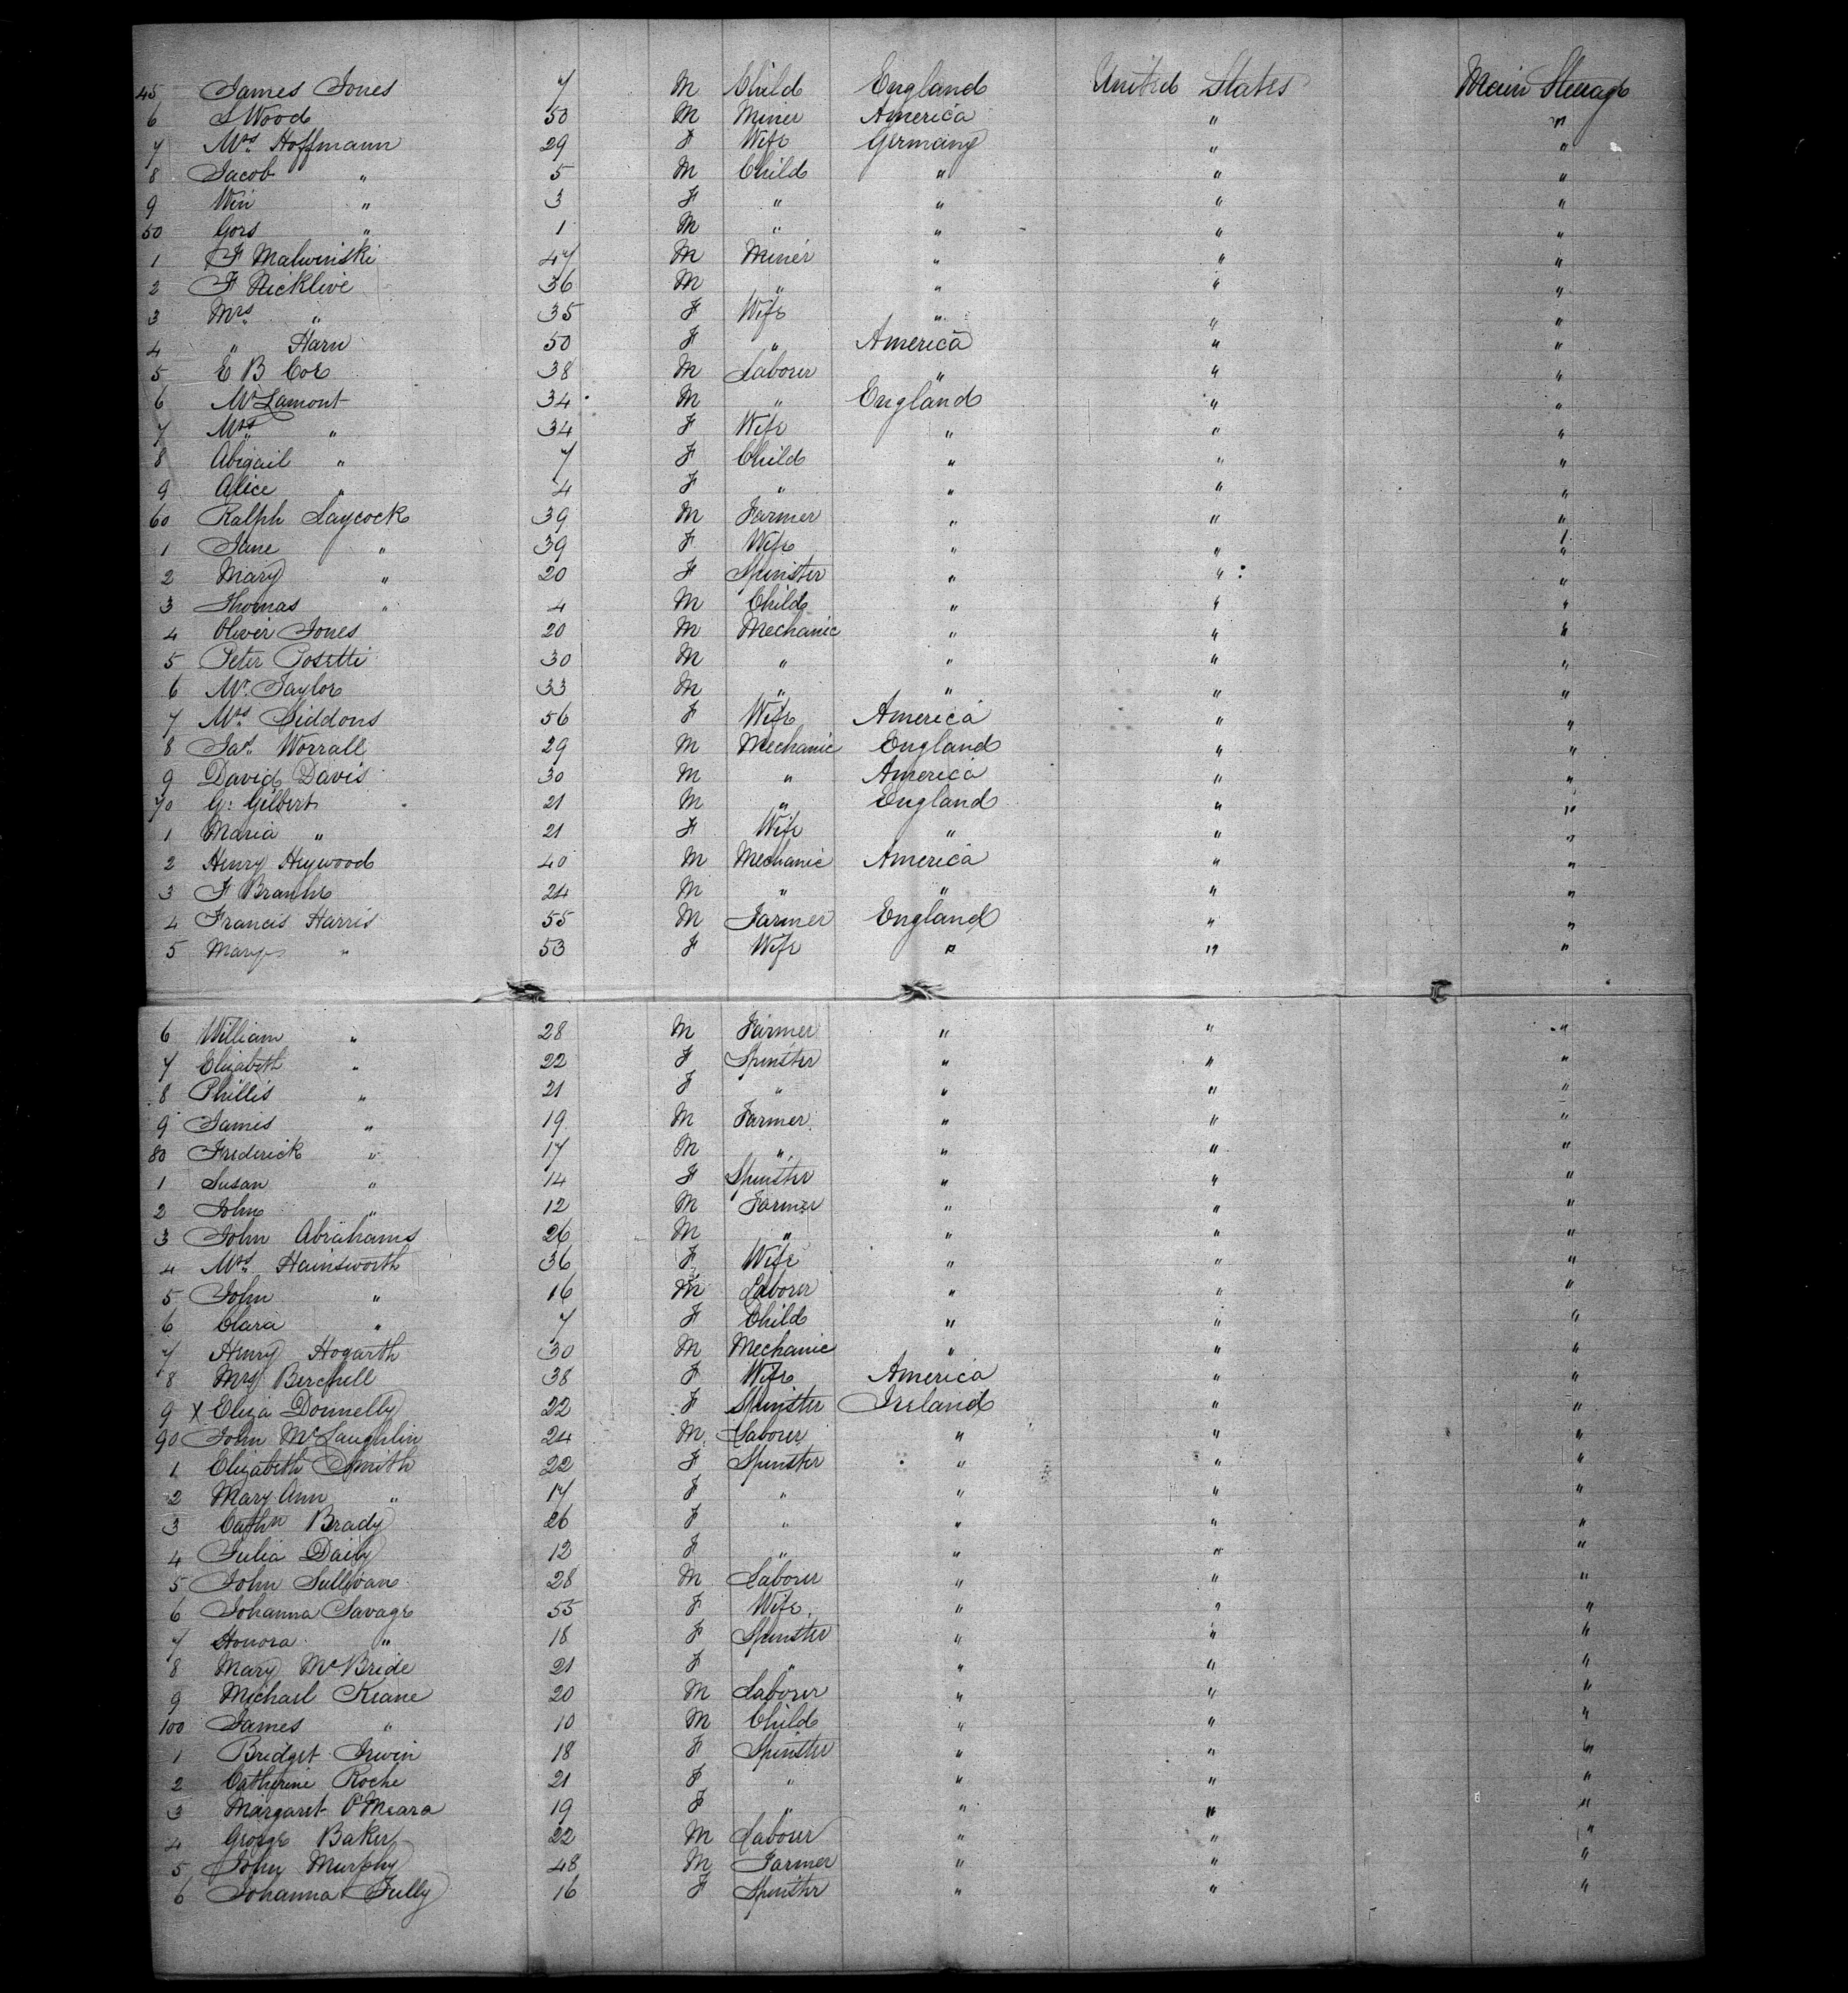 45 James Jones 7 M Child England United States Main Steerage
6 S Wood 50 M Miner America " "
7 Mrs. Hoffmann 29 F Wife Germany " "
8 Jacob " 5 M Child " " "
9 Win " 3 F " " " "
50 Gors " 1 M " " " "
1 F Malwinski 47 M Miner " " "
2 F Nicklive 36 M " " " "
3 Mrs. " 35 F Wife " " "
4 " Harn 50 F " America " "
5 E B Cox 38 M Laborer " " "
6 Mr Lamont 34 M " England " "
7 Mrs " 34 F Wife " " "
8 Abigail " 7 F Child " " "
9 Alice " 4 F " " " "
60 Ralph Laycock 39 M Farmer " " "
1 Jane " 39 F Wife " " "
2 Mary " 20 F Spinster " " "
3 Thomas " 4 M Child " " "
4 Oliver Jones 20 M Mechanic " " "
5 Peter Posetti 30 M " " " "
6 Mr. Taylor 33 M " " " "
7 Mrs. Siddons 56 F Wife America " "
8 Jas. Worrall 29 M Mechanic England " "
9 David Davis 30 M " America " "
70 G. Gilbert 21 M " England " "
1 Maria " 21 F Wife " " "
2 Henry Heywood 40 M Mechanic America " "
3 F 24 M " " " "
4 Francis Harris 55 M Farmer England " "
5 Mary " 53 F Wife " " "
6 William " 28 M Farmer " " "
7 Elizabeth " 22 F Spinster " " "
8 Phillis " 21 F " " " "
9 James " 19 M Farmer " " "
80 Frederick " 17 M " " " "
1 Susan " 14 F Spinster " " "
2 John " 12 M Farmer " " "
3 John Abrahams 26 M " " " "
4 Mrs. Hainsworth 36 F Wife " " "
5 John " 16 M Laborer " " "
6 Clara " 7 F Child " " "
7 Henry Hogarth 30 M Mechanic " " "
8 Mrs Birchell 38 F Wife America " "
9 X Eliza Donnelly 22 F Spinster Ireland " "
90 John McLaughlin 24 M Laborer " " "
1 Elizabeth Smith 22 F Spinster " " "
2 Mary Ann " 17 F " " " "
3 Cathn Brady 26 F " " " "
4 Julia Daily 12 F " " " "
5 John Sullivan 28 M Laborer " " "
6 Johanna Savage 55 F Wife " " "
7 Honora " 18 F Spinster " " "
8 Mary McBride 21 F " " " "
9 Michael Keane 20 M Laborer " " "
100 James " 10 M Child " " "
1 Bridget Irwin 18 F Spinster " " "
2 Catherine Roche 21 F " " " "
3 Margaret O'Meara 19 F " " " "
4 George Baker 22 M Labourer " " "
5 John Murphy 48 M Farmer " " "
6 Johanna Tully 16 F Spinster " " "